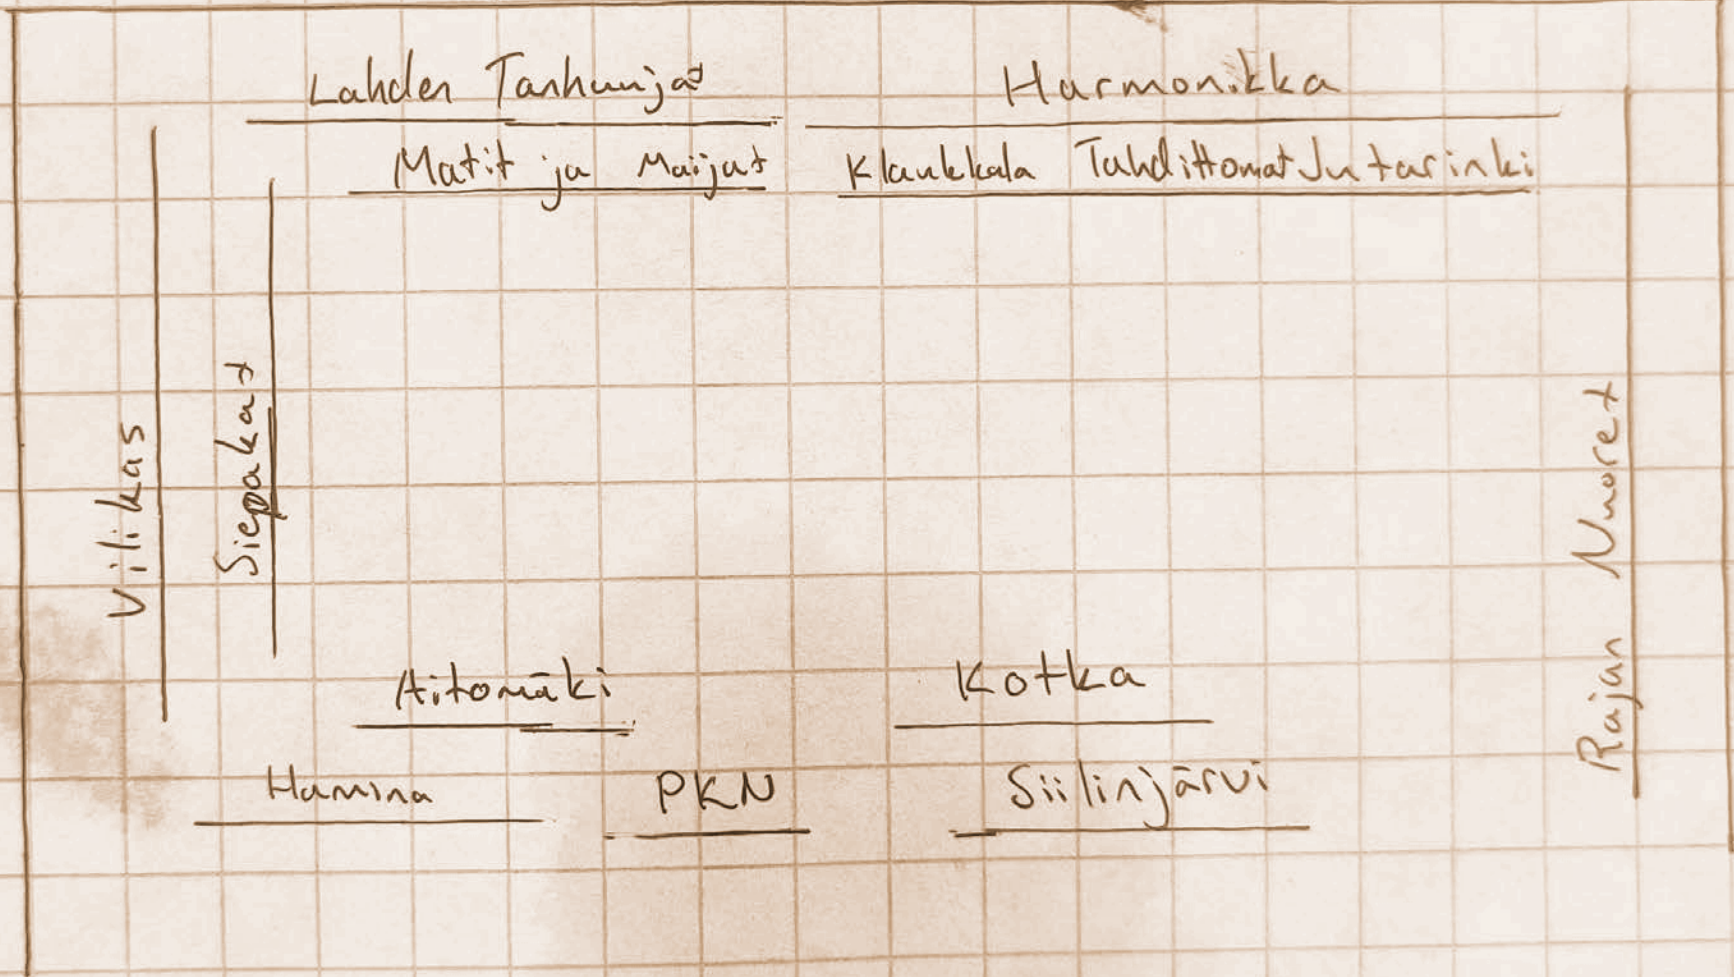 Lahden Tanhuujat
Harmonikka
Matit ja Maijat
Klaukkala Tahdittomat Jutarinki
Vilikas
Siepakat
Rajan Nuoret
Aitomäki
Kotka
Hamina
PKN
Siilinjärvi